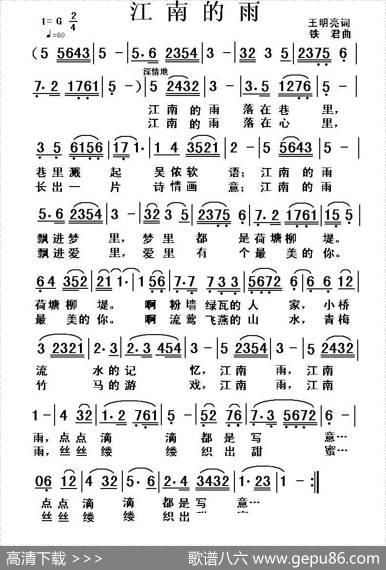 江南的雨
1=G 2/4
♩=60
王明亮词
铁 君曲
(5 5643 | 5 - | 5·6 2354 | 3 - | 32 3 5 | 2375 6 |
深情地
7·2 1761 | 5 -) | 5 2432 | 3 - | 3·5 1276 | 5 - |
江南的雨 落在巷里,
江南的雨 落在心里,
3 5 6156 | 17 1· | 1 4 3521 | 2 - | 2 5 5643 | 5 - |
巷里溅 起 吴侬软 语;江南的雨
长出一 片 诗情画 意;江南的雨
5·6 2354 | 3 - | 32 3 5 | 2375 6 | 7·2 1761 | 15 5 |
飘进梦 里,梦里 都 是荷塘柳 堤。
飘进爱 里,爱里 有 个最美的你。
64 352 | 21 1 · | 1 56 | 7·7 7 33 | 5672 6 | 6 66 |
荷塘柳 堤。 啊 粉墙 绿瓦的人 家,小桥
最美的你。 啊 流莺 飞燕的山 水,青梅
3 2321 | 2·3 | 2·3 454 | 3 - | 3 5 | 5 2432 |
流 水的记 忆,江南 雨,江南
竹 马的游 戏,江南 雨,江南
1 - | 4 32 | 1·2 761 | 5 - | 52 76 | 7·3 5672 |
雨,点点 滴 滴 都是 写 意…
雨,丝丝 缕 缕 织出 甜 蜜…
06 12 | 4·5 4 | 2·4 3432 | 1 23 21 | 1 - :||
点点 滴 滴 都是写 意…
丝丝 缕 缕 织出
高清下载 >>>
歌谱八六 www.gepu86.com